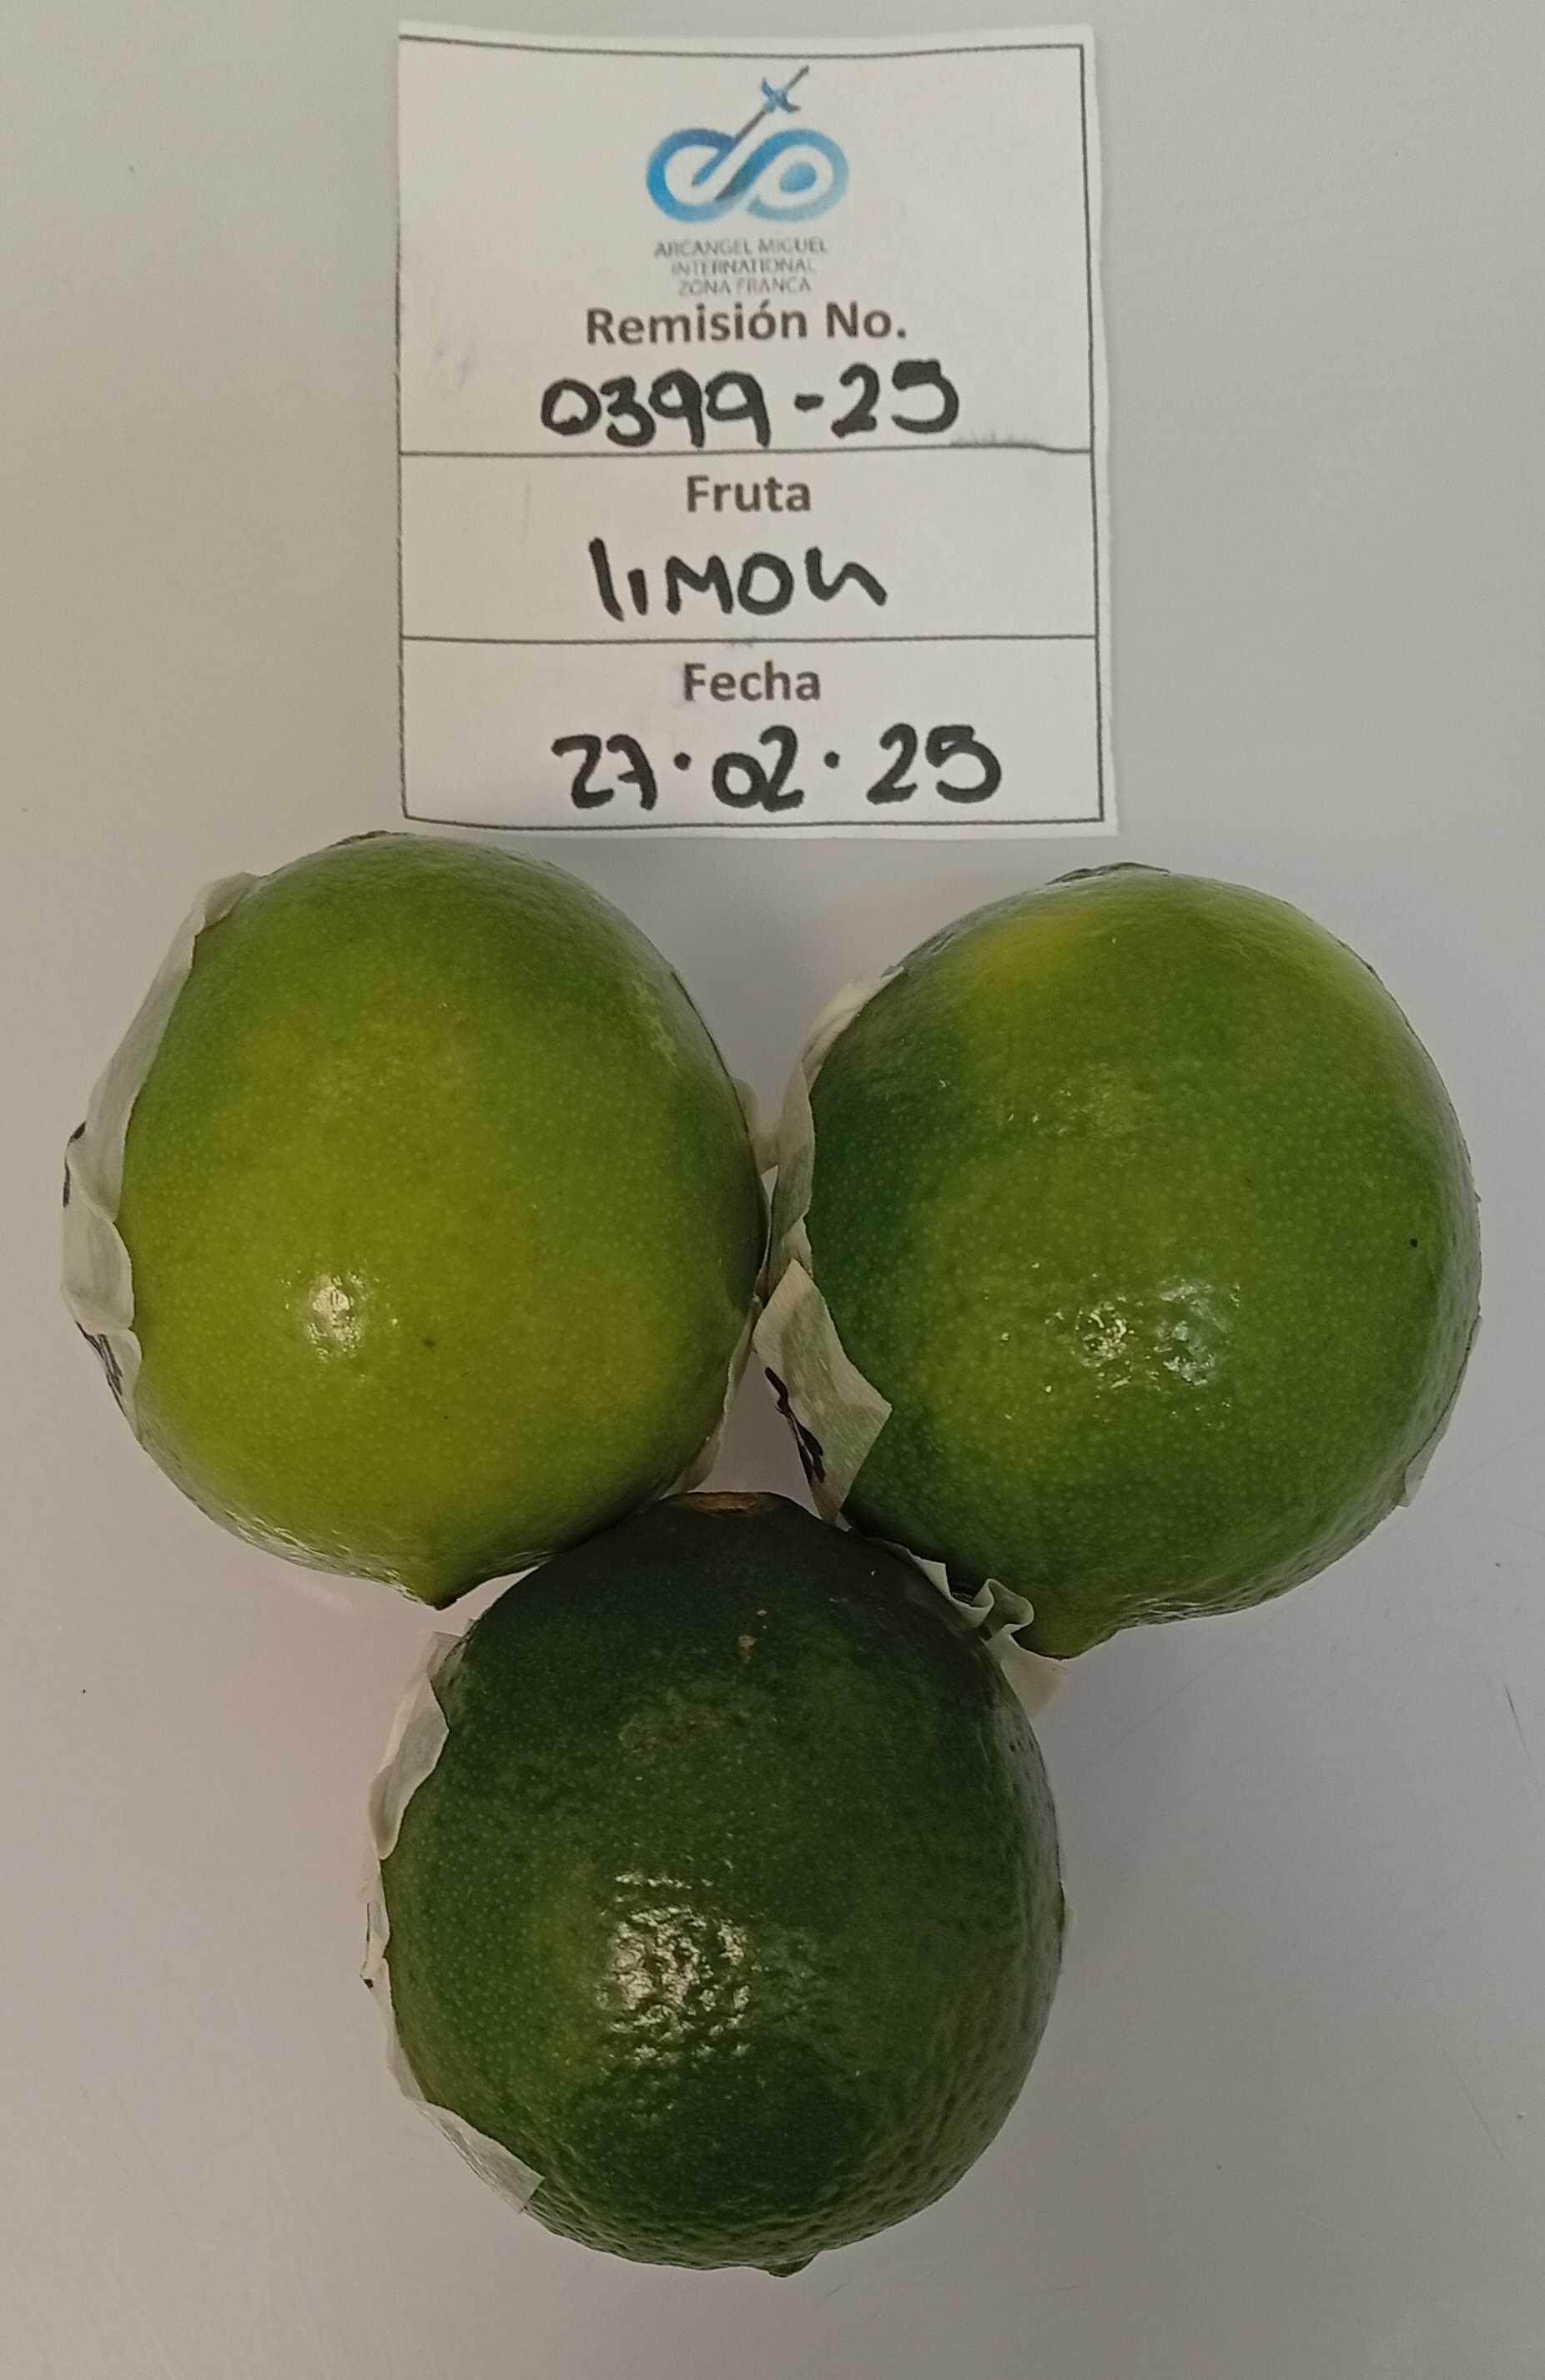 ARCANGEL MIGUEL
INTERNATIONAL
ZONA FRANCA
Remisión No.
0399-25
Fruta
limon
Fecha
27·02·25